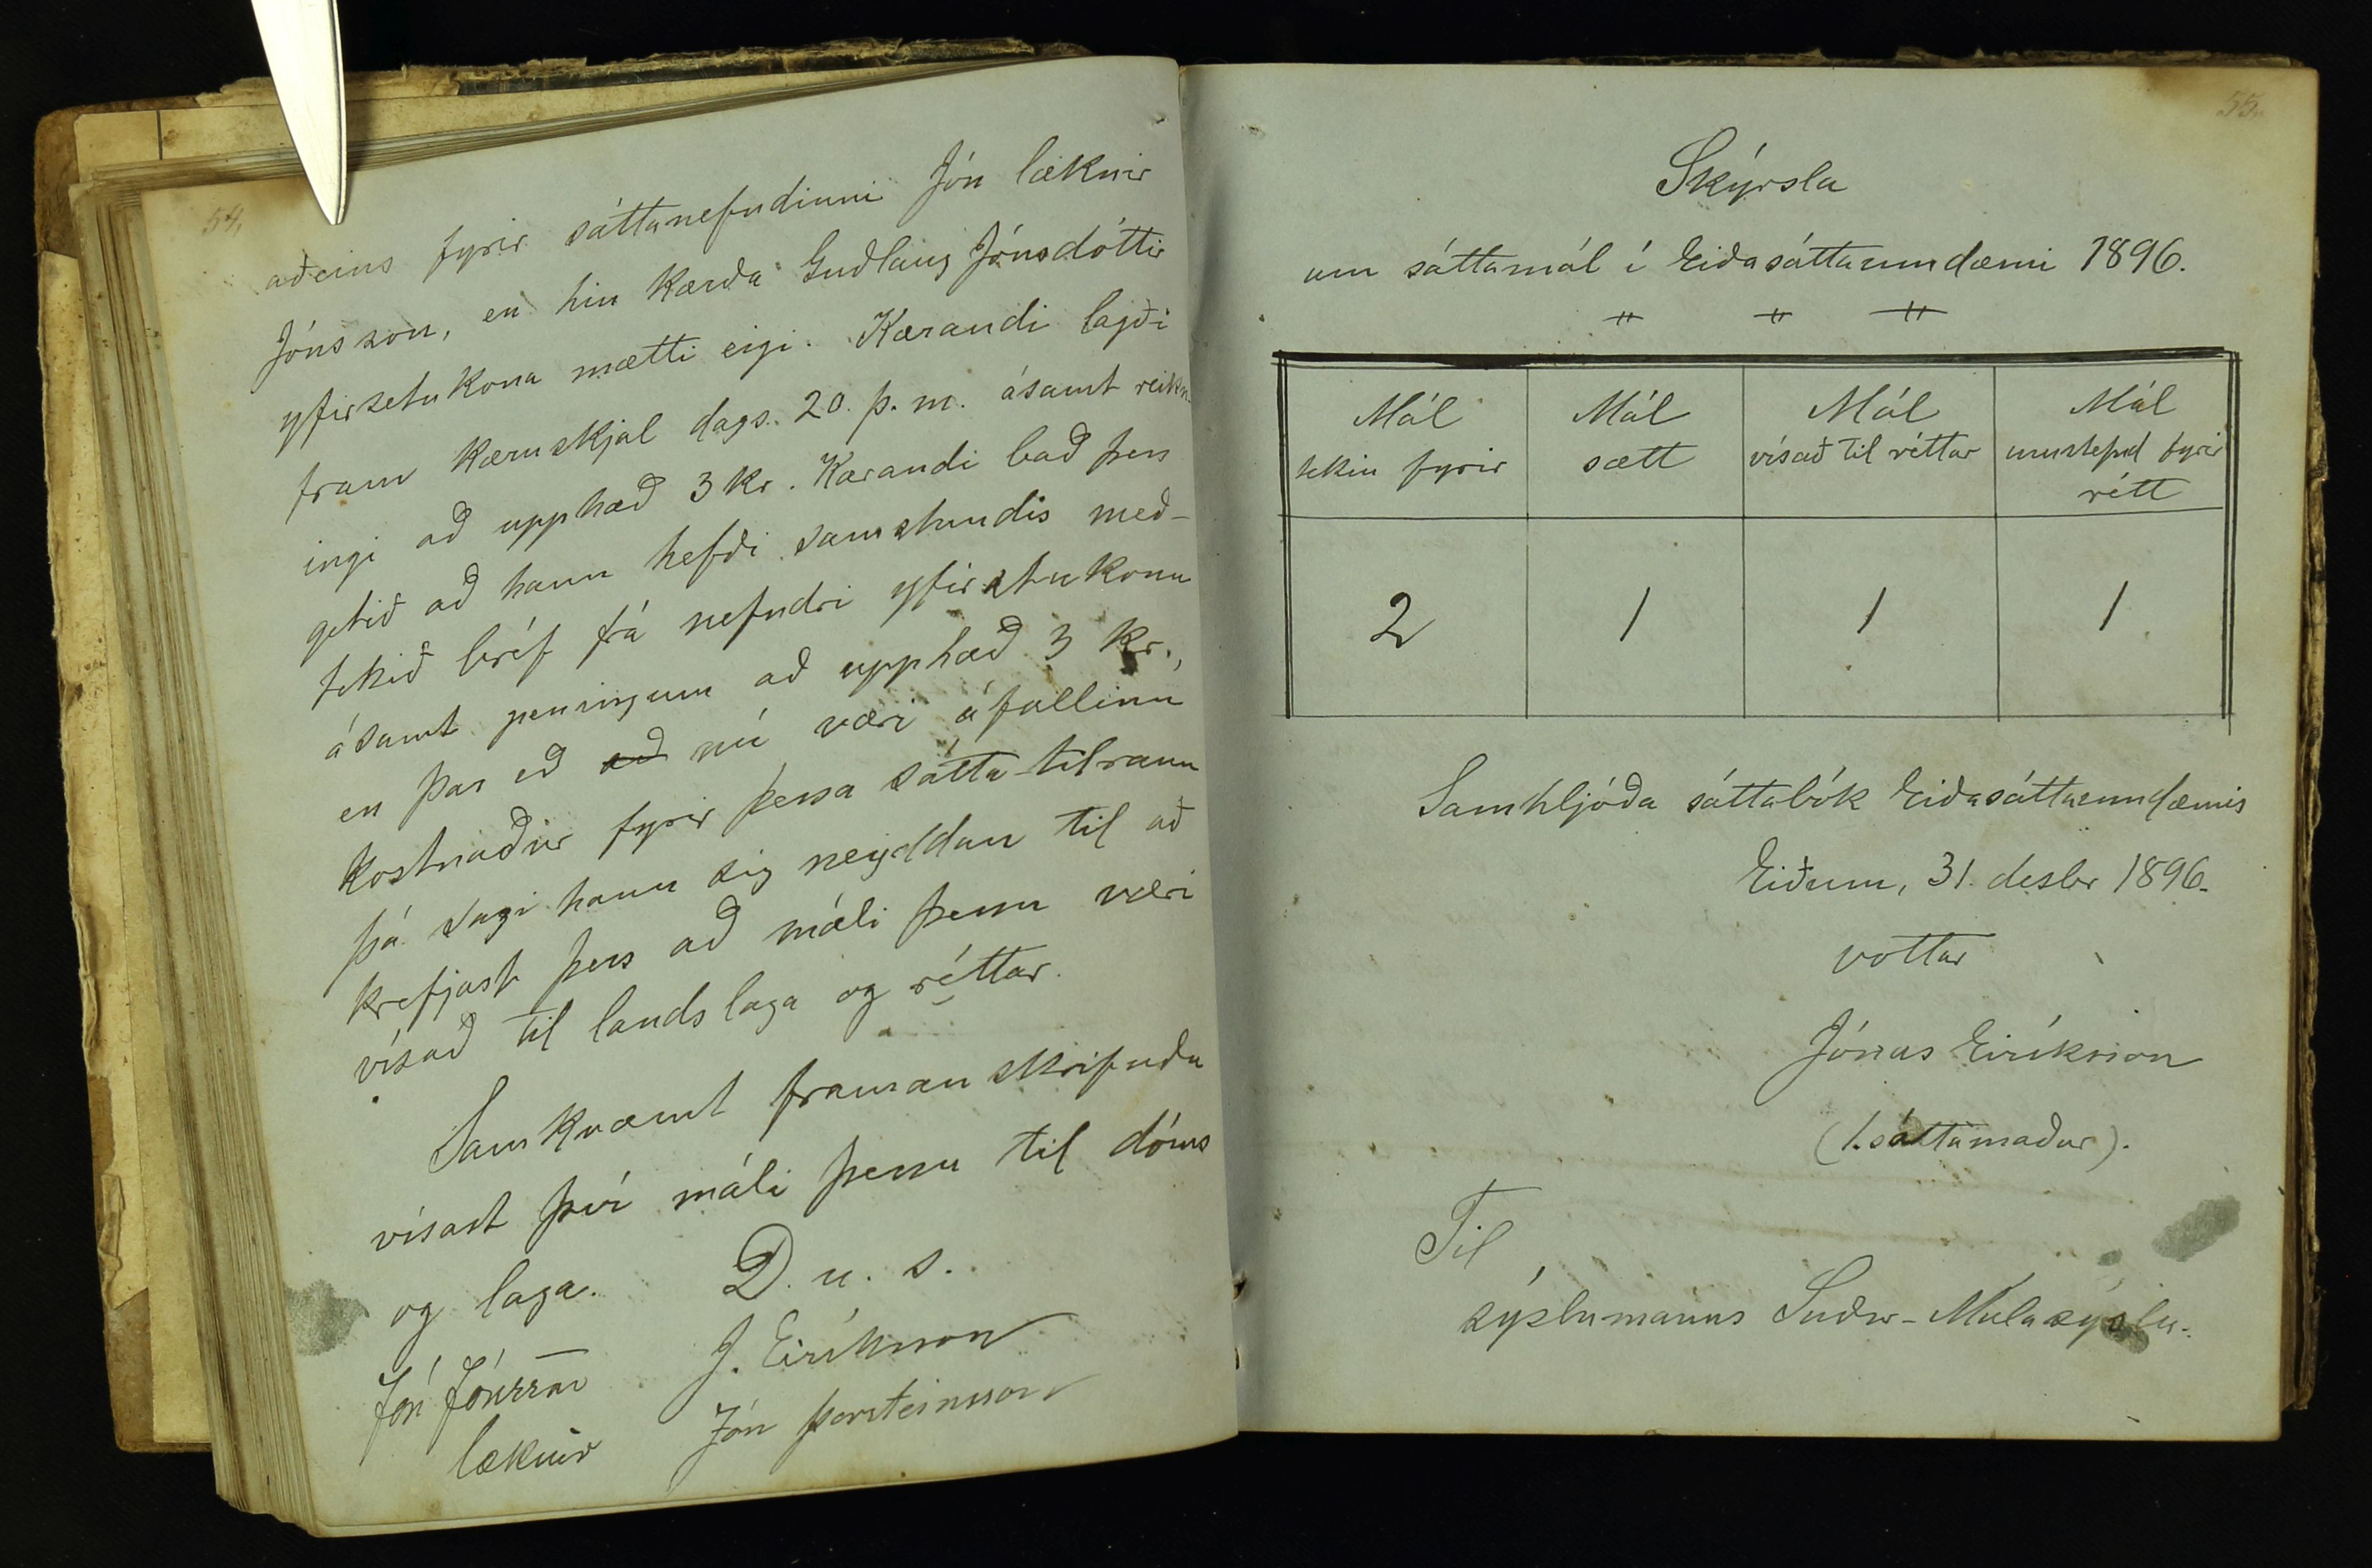 54,
aðeins fyrir sáttanefndinni Jón læknir
Jónsson, en hin kærða Guðlaug Jónsdóttir
yfirsetukona mætti eigi. Kærandi lagði
fram kæruskjal dags. 20. þ. m. ásamt reikn-
ingi að upphæð 3 kr. Kærandi bað þess
getið að hann hefði samstundis með-
tekið bréf frá nefndri yfirsetukonu
ásamt peningum að upphæð 3 kr.,
en þar eð að nú væri áfallinn
kostnaður fyrir þessa sátta-tilraun
þá sagi hann sig neyddan til að
krefjast þess að máli þessu væri
vísað til landslaga og réttar.
Samkvæmt framanskrifuðu
vísast því máli þessu til dóms
og laga.
D. u. s.
Jón Jónsson J. Eiríksson
læknir Jón Þorsteinsson
55.
Skýrsla
um sáttamál í Eiðasáttaumdæmi 1896.
Mál tekin fyrir
Mál sætt
Mál vísað til réttar
Mál umstefnd fyrir rétt
2 1 1 1
Samhljóða sáttabók Eiðasáttaumdæmis
Eiðum, 31. desbr 1896.
vottar
Jónas Eiríksson
(1. sáttamaður).
Til
sýslumanns Suður-Mulasýslu.